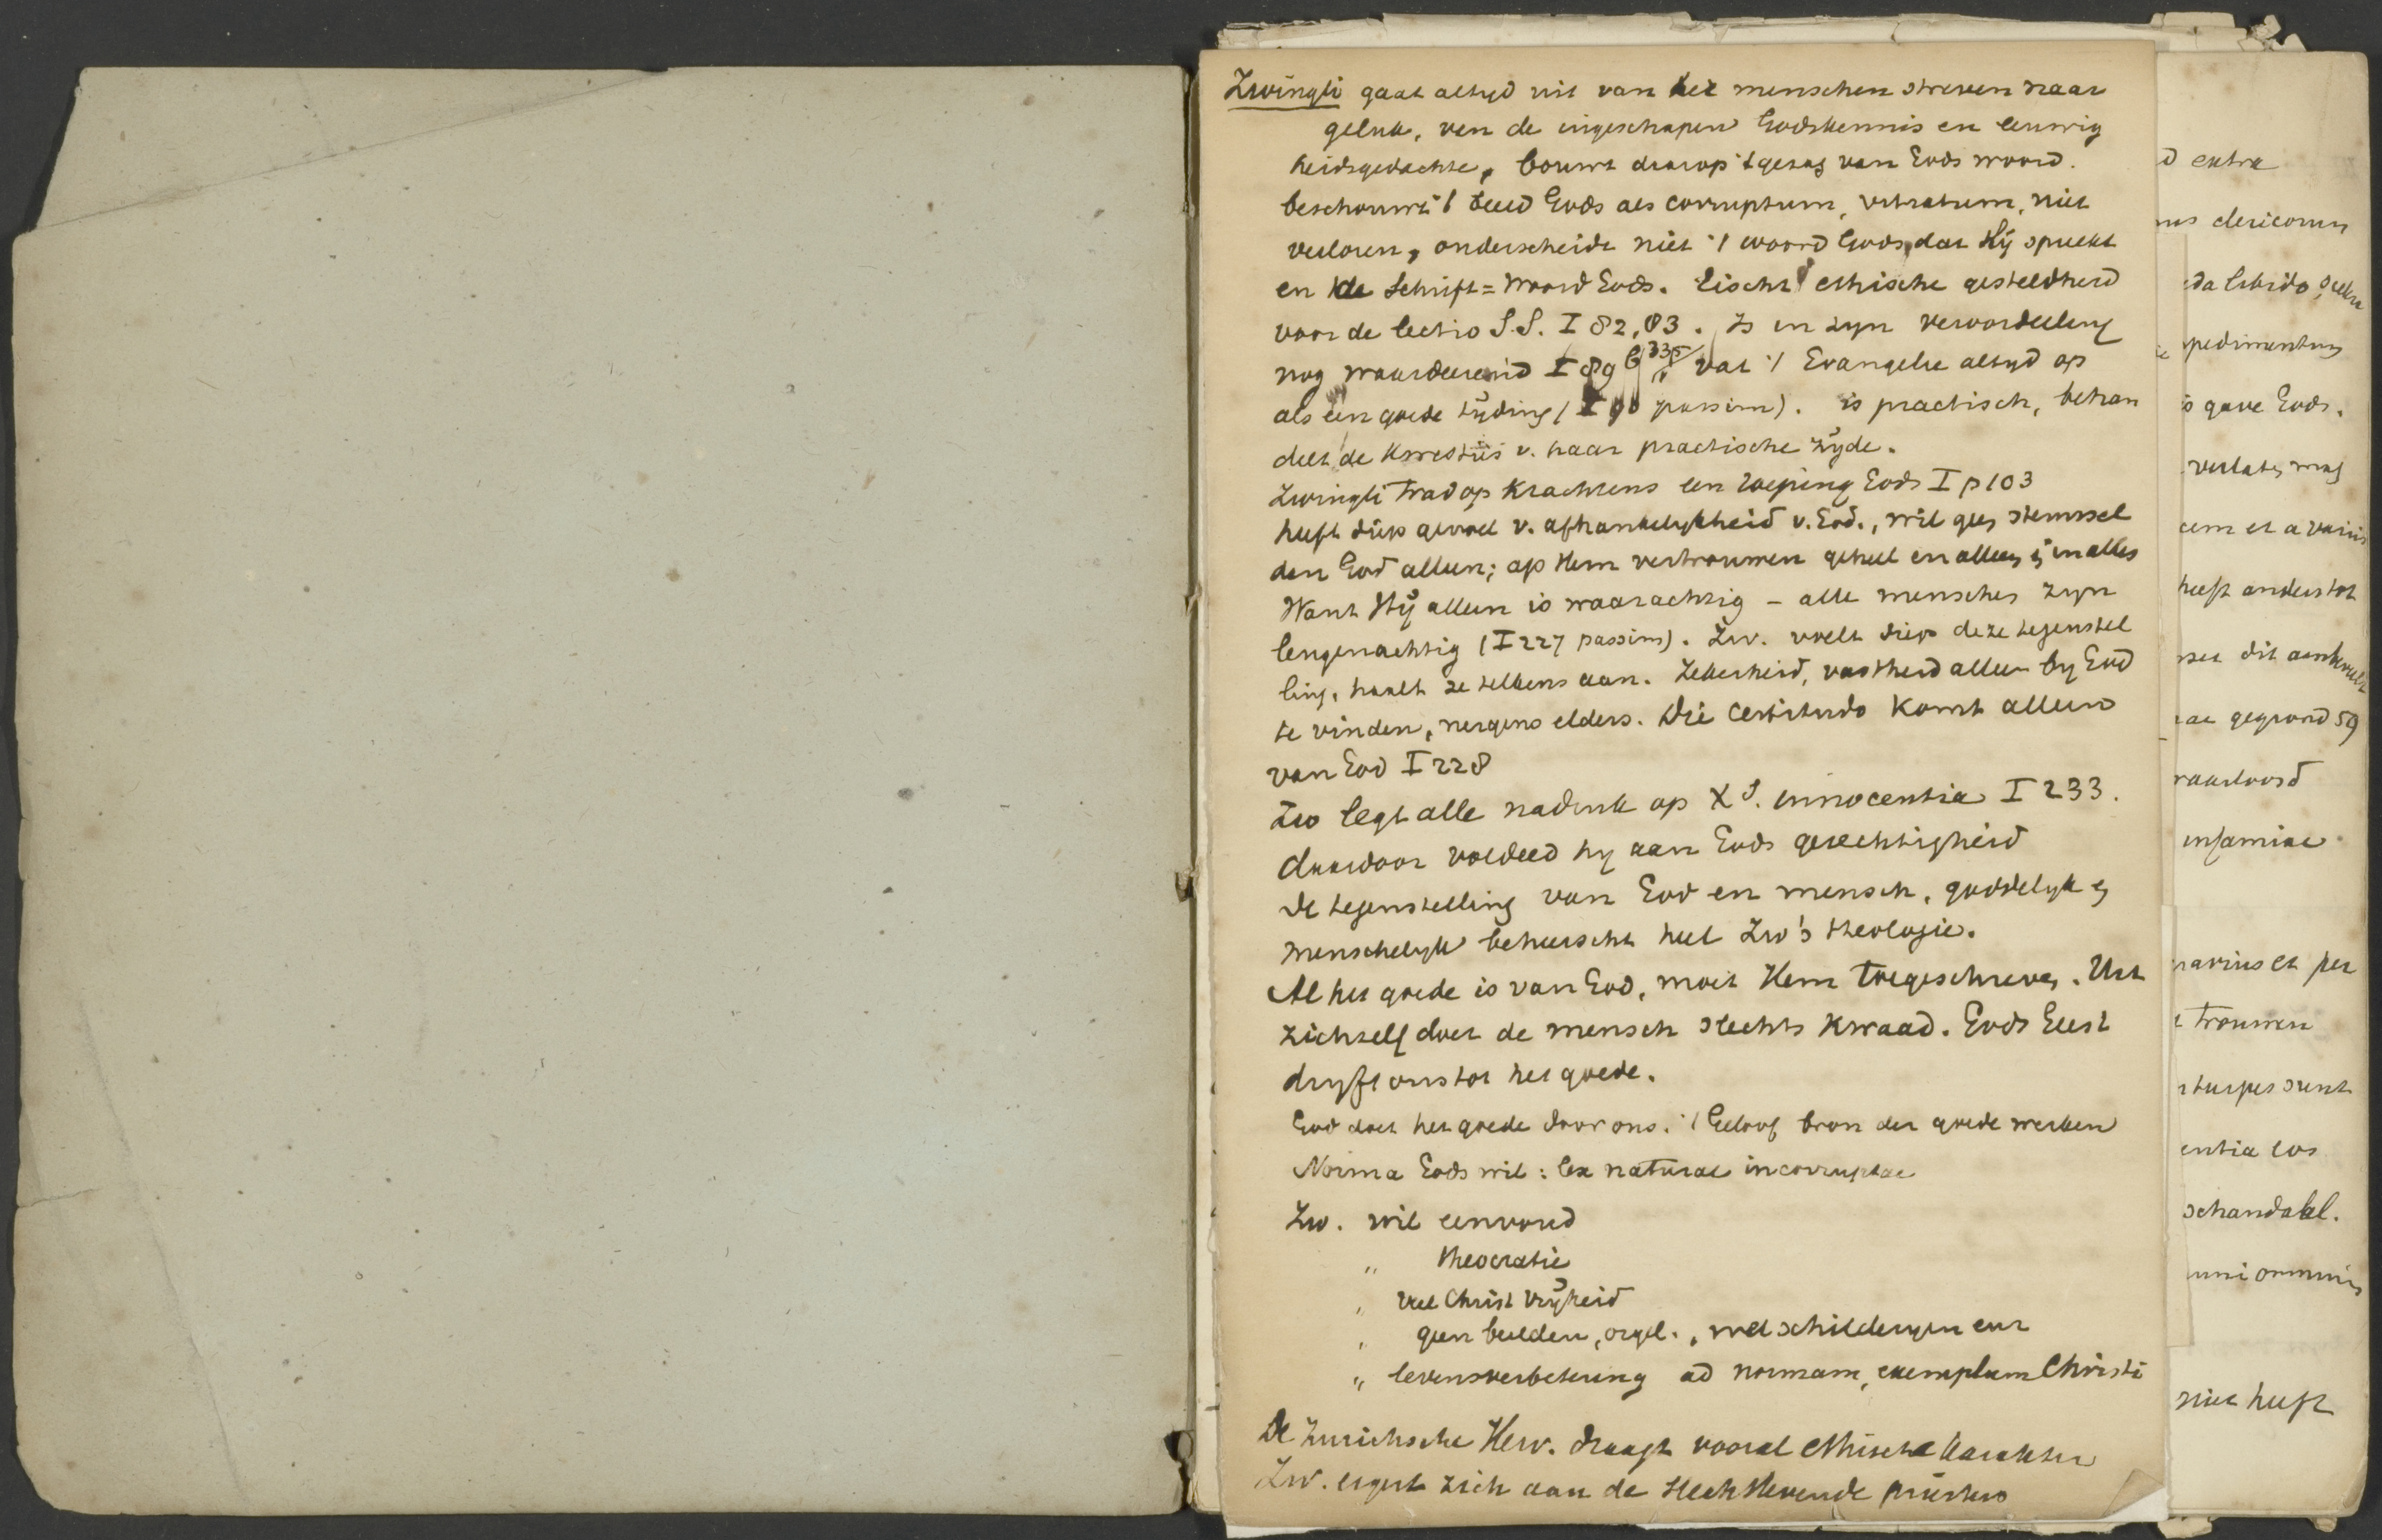 Zwingli gaat altyd uit van het menschen streven naar
geluk, van de ingeschapen Godskennis en eeuwig
heidsgedachte, bouwt daarop 't gezag van Gods woord.
beschouwt 't beeld Gods als corruptum, vitiatum, niet
verloren, onderscheidt niet 't woord Gods, dat Hij spreekt
en de Schrift = Woord Gods. Eischt ethische gesteldheid
voor de lectio S.S. I 82, 83. Is in zyn veroordeeling
nog waardeerend I 89 vat 't Evangelie altyd op
als een goede tijding (I 90 passim). is practisch, behan
delt de kwesties v. haar practische zijde.
Zwingli trad op krachtens een roeping Gods I p 103
heeft diep gevoel v. afhankelykheid v. God., wil geen steunsel
dan God alleen; op Hem vertrouwen geheel en alleen in alles
Want Hij alleen is waarachtig - alle menschen zyn
leugenachtig (I 227 passim). Zw. voelt diep deze tegenstel
ling, haalt ze telkens aan. Zekerheid, vastheid alleen by God
te vinden, nergens elders. Die certitudo komt alleen
van God I 228
Zw legt alle nadruk op X's. innocentia I 233.
daardoor voldeed hy aan Gods gerechtigheid
De tegenstelling van God en mensch, goddelyk en
menschelyk beheerscht heel Zw's theologie.
Al het goede is van God, moet Hem toegeschreven. Uit
zichzelf doet de mensch slechts kwaad. Gods Geest
dryft ons tot het goede.
God doet het goede door ons. 't Geloof bron der goede werken
Norma Gods wil: lex naturae incorruptae
Zw. wil eenvoud
" theocratie
" veel Christ vrijheid
" geen beelden, orgel., wel schilderyen enz
" levensverbetering ad normam, exemplum Christi
De Zurichsche Herv. draagt vooral ethisch karakter
Zw. ergert zich aan de slecht levende priesters
d extra
clericorum
libido
pedimentum
is gave Gods.
verlaten mag
cem et a variis
heeft anders tot
dit
gegrond 59
infamiae
et per
trouwen
turpes sunt
entia eos
schandaal.
omnium
niet heeft